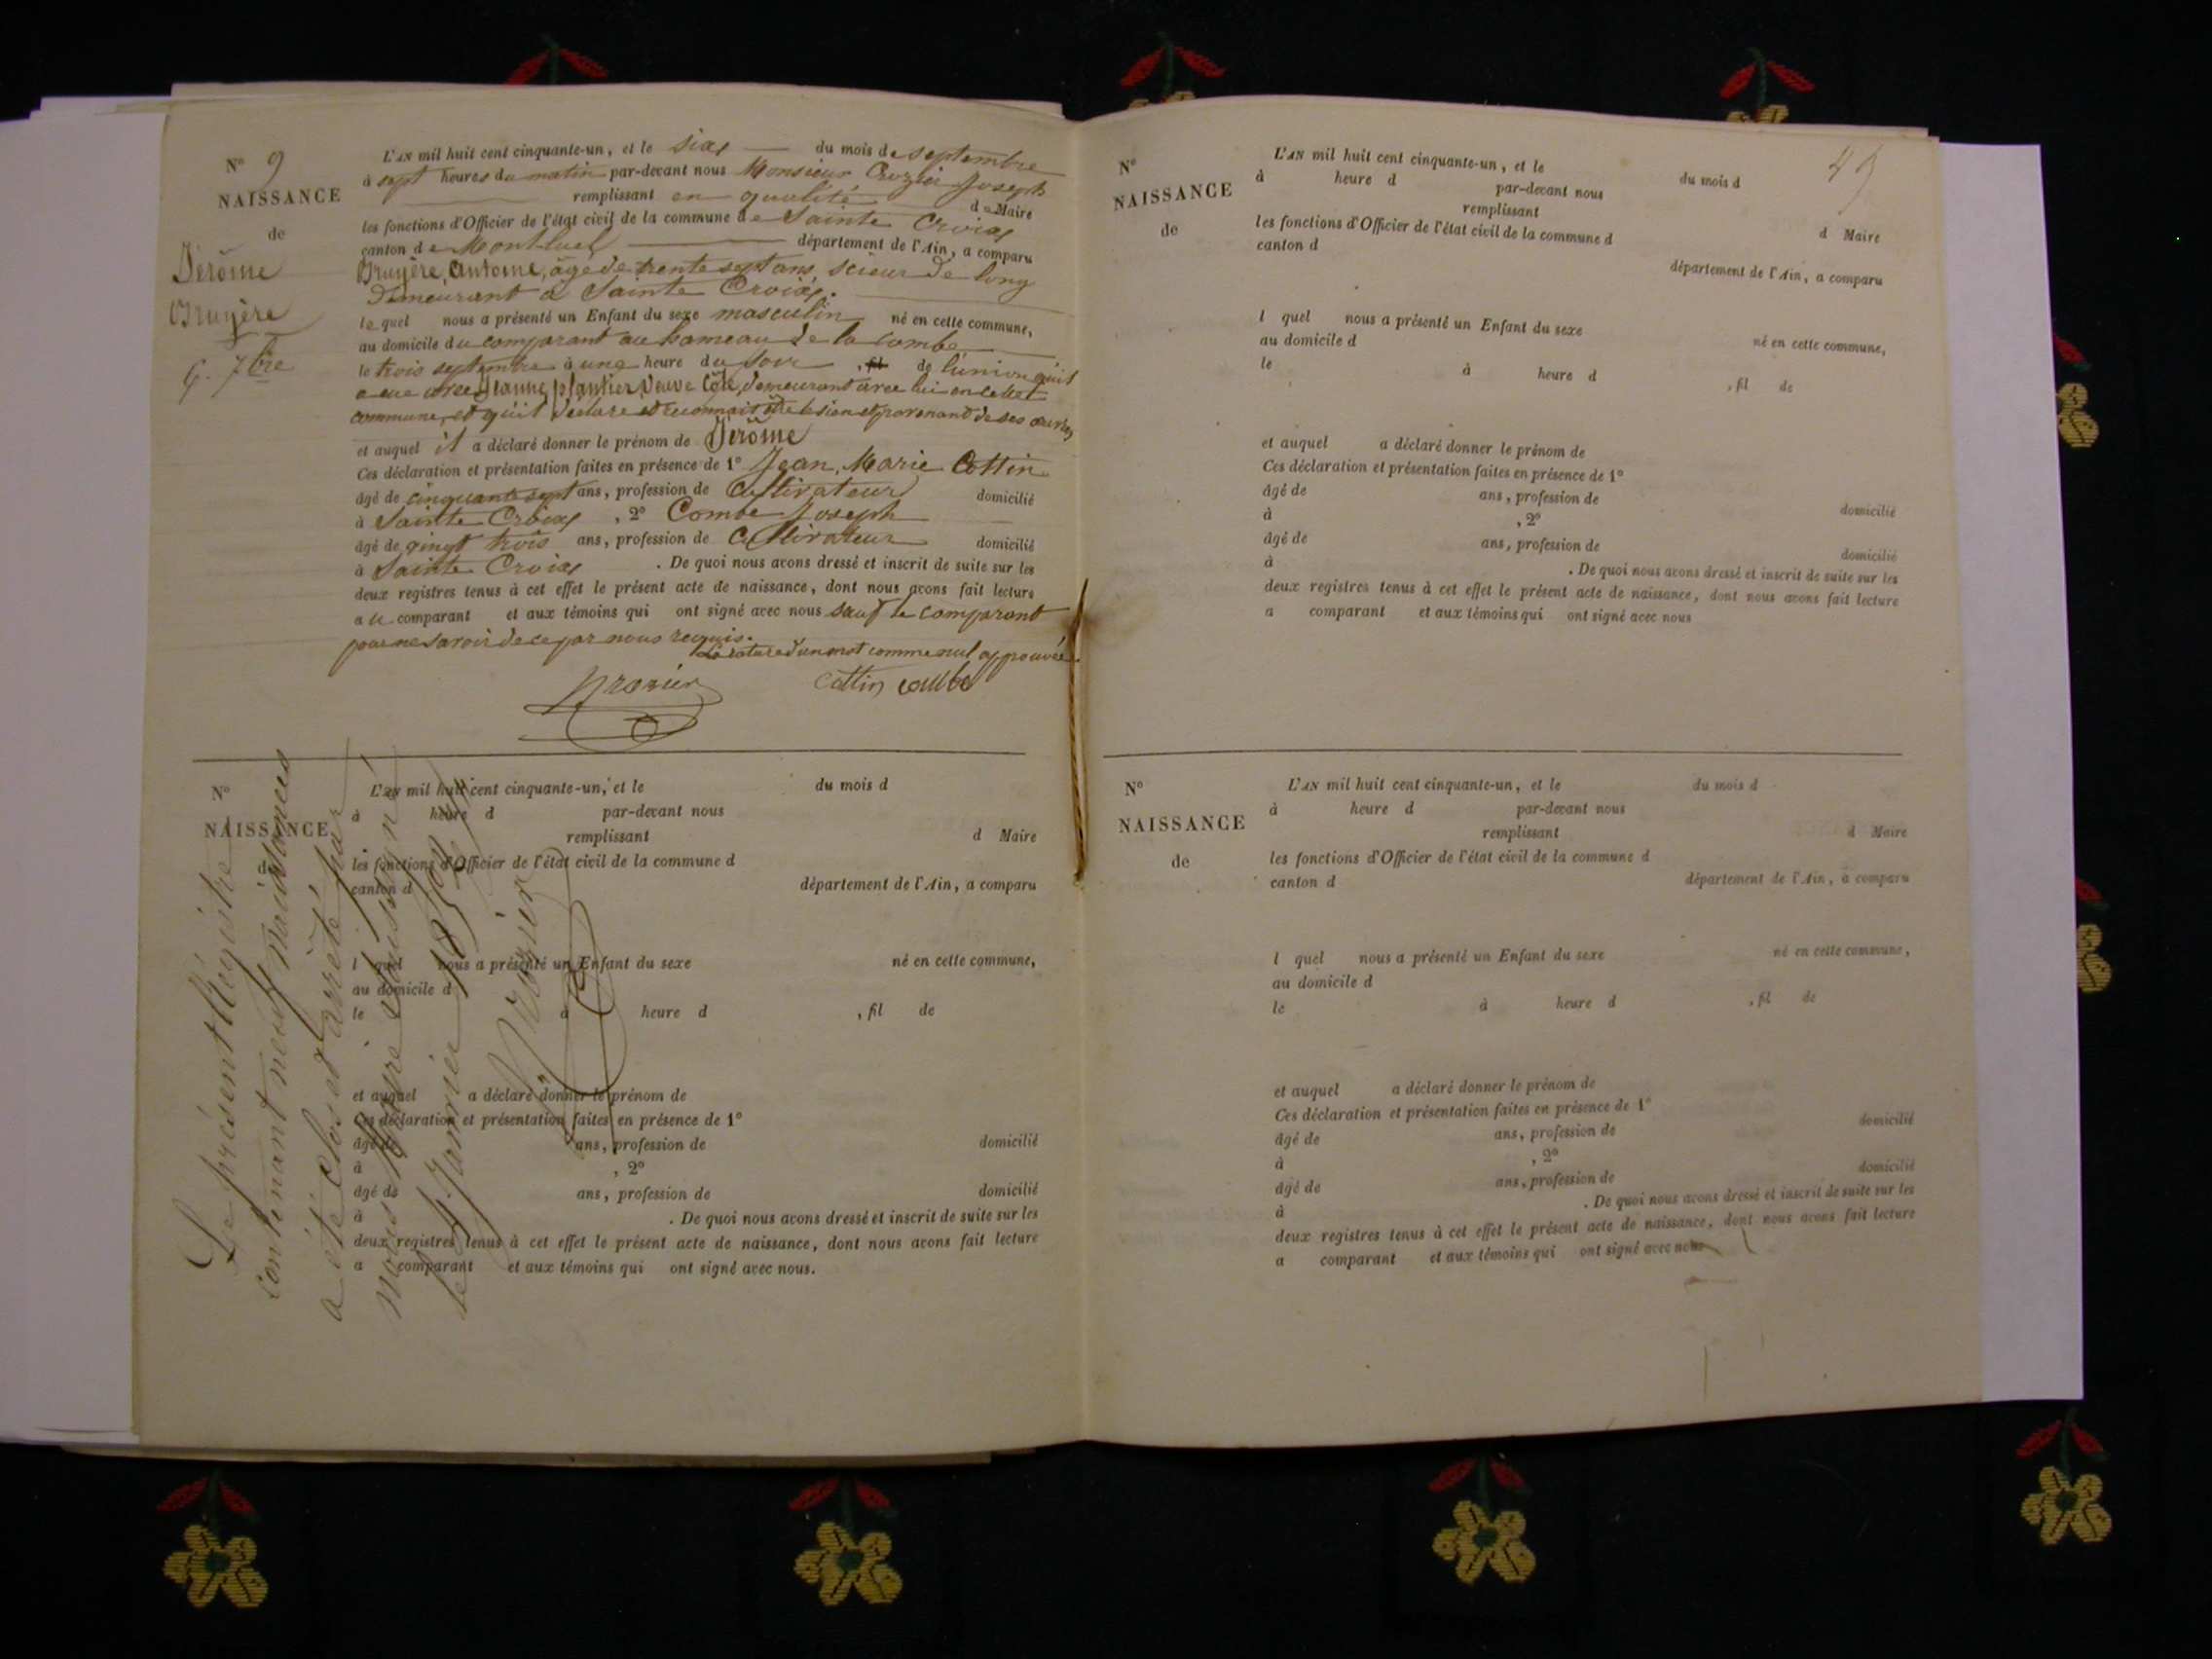 N° 9
NAISSANCE
de
Jérôme
Bruyère
6. 7bre
L'AN mil huit cent cinquante-un, et le six du mois de septembre
à sept heures du matin par-devant nous Monsieur Crozier Joseph
remplissant en qualité de Maire
les fonctions d'Officier de l'état civil de la commune de Sainte Croix
canton de Montluel département de l'Ain, a comparu
Bruyère, Antoine, âgé de trente sept ans, scieur de long
demeurant à Sainte Croix.
lequel nous a présenté un Enfant du sexe masculin né en cette commune,
au domicile du comparant au hameau de la combe
le trois septembre à une heure du soir, fil de l'union qu'il
a eue avec Jeanne plantier Veuve demeurant avec lui en cette
commune, et qu'il déclare et reconnait être le sien et provenant de ses œuvres
et auquel il a déclaré donner le prénom de Jérôme
Ces déclaration et présentation faites en présence de 1° Jean, Marie Cottin
âgé de cinquante sept ans, profession de Cultivateur domicilié
à Sainte Croix, 2° Combe Joseph
âgé de vingt trois ans, profession de Cultivateur domicilié
à Sainte Croix. De quoi nous avons dressé et inscrit de suite sur les
deux registres tenus à cet effet le présent acte de naissance, dont nous avons fait lecture
au comparant et aux témoins qui ont signé avec nous sauf le comparant
pour ne savoir de ce par nous requis.
La rature d'un mot comme nul approuvée.
Crozier Cottin combe
N°
NAISSANCE
de
L'AN mil huit cent cinquante-un, et le du mois d
à heure d par-devant nous
remplissant d Maire
les fonctions d'Officier de l'état civil de la commune d
canton d département de l'Ain, a comparu
l quel nous a présenté un Enfant du sexe né en cette commune,
au domicile d
le à heure d , fil de
et auquel a déclaré donner le prénom de
Ces déclaration et présentation faites en présence de 1°
âgé de ans, profession de domicilié
à , 2°
âgé de ans, profession de domicilié
à . De quoi nous avons dressé et inscrit de suite sur les
deux registres tenus à cet effet le présent acte de naissance, dont nous avons fait lecture
a comparant et aux témoins qui ont signé avec nous.
Le présent Régistre
contenant neuf naissances
a été clos et arrêté par
nous Maire soussigné
le Janvier 1852
Crozier
49
N°
NAISSANCE
de
L'AN mil huit cent cinquante-un, et le du mois d
à heure d par-devant nous
remplissant d Maire
les fonctions d'Officier de l'état civil de la commune d
canton d département de l'Ain, a comparu
l quel nous a présenté un Enfant du sexe né en cette commune,
au domicile d
le à heure d , fil de
et auquel a déclaré donner le prénom de
Ces déclaration et présentation faites en présence de 1°
âgé de ans, profession de domicilié
à , 2°
âgé de ans, profession de domicilié
à . De quoi nous avons dressé et inscrit de suite sur les
deux registres tenus à cet effet le présent acte de naissance, dont nous avons fait lecture
a comparant et aux témoins qui ont signé avec nous
N°
NAISSANCE
de
L'AN mil huit cent cinquante-un, et le du mois d
à heure d par-devant nous
remplissant d Maire
les fonctions d'Officier de l'état civil de la commune d
canton d département de l'Ain, a comparu
l quel nous a présenté un Enfant du sexe né en cette commune,
au domicile d
le à heure d , fil de
et auquel a déclaré donner le prénom de
Ces déclaration et présentation faites en présence de 1°
âgé de ans, profession de domicilié
à , 2°
âgé de ans, profession de domicilié
à . De quoi nous avons dressé et inscrit de suite sur les
deux registres tenus à cet effet le présent acte de naissance, dont nous avons fait lecture
a comparant et aux témoins qui ont signé avec nous